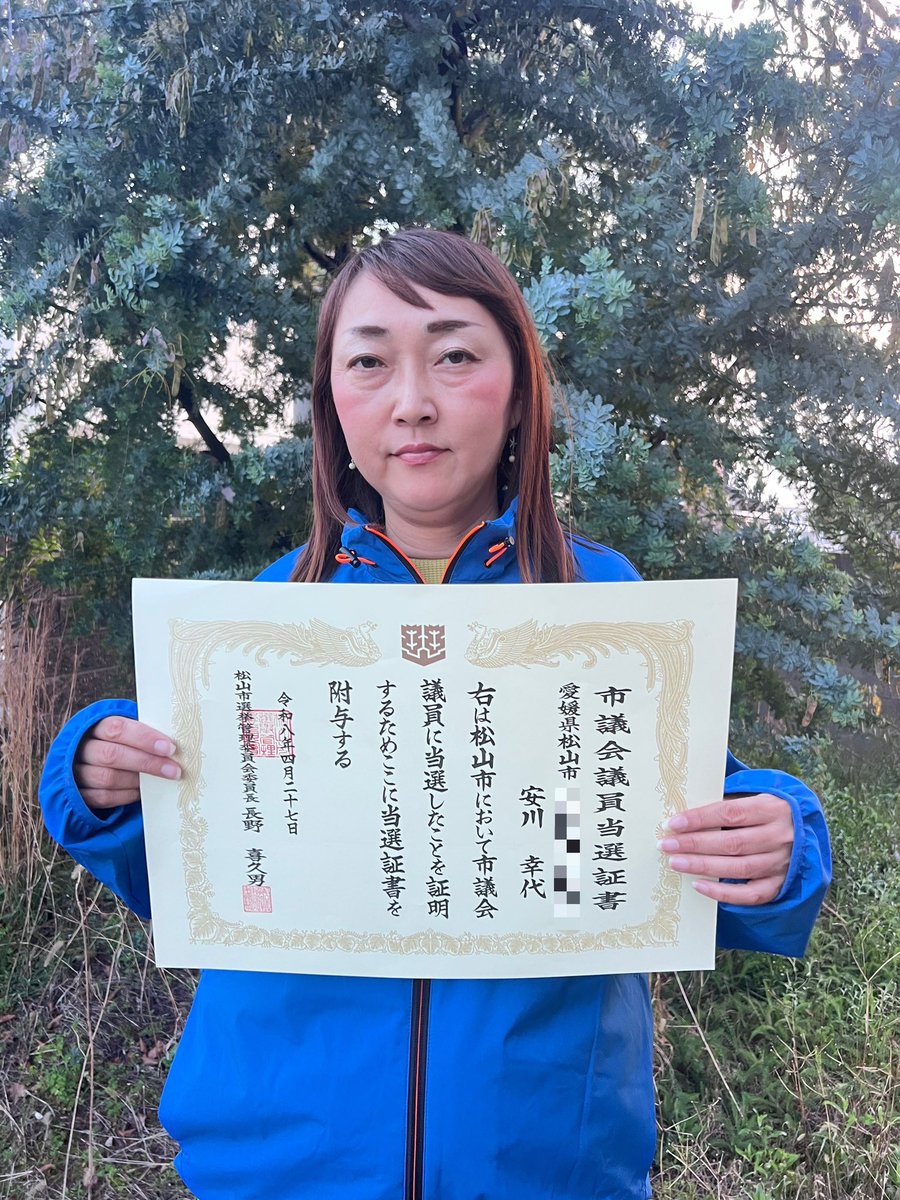 市議会議員当選証書
愛媛県松山市
安川 幸代
右は松山市において市議会
議員に当選したことを証明
するためここに当選証書を
附与する
令和八年四月二十七日
松山市選挙管理委員会委員長 長野 喜久男